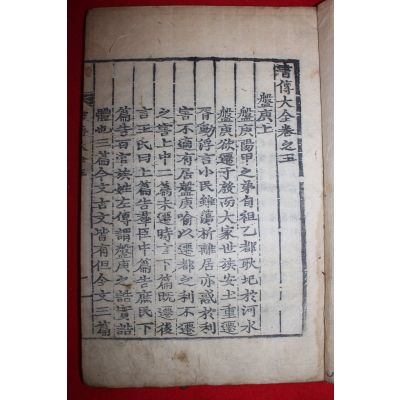 書傳大全卷之五
盤庚上
盤庚陽甲之弟自祖乙都耿圮於河水
盤庚欲遷于殷而大家世族安土重遷
胥動浮言小民雖蕩析離居亦惑於利
害不適有居盤庚喻以遷都之利不遷
之害上中二篇未遷時言下篇既遷後
言王氏曰上篇告羣臣中篇告庶民下
篇告百官族姓左傳謂盤庚之誥實誥
體也三篇今文古文皆有但今文三篇